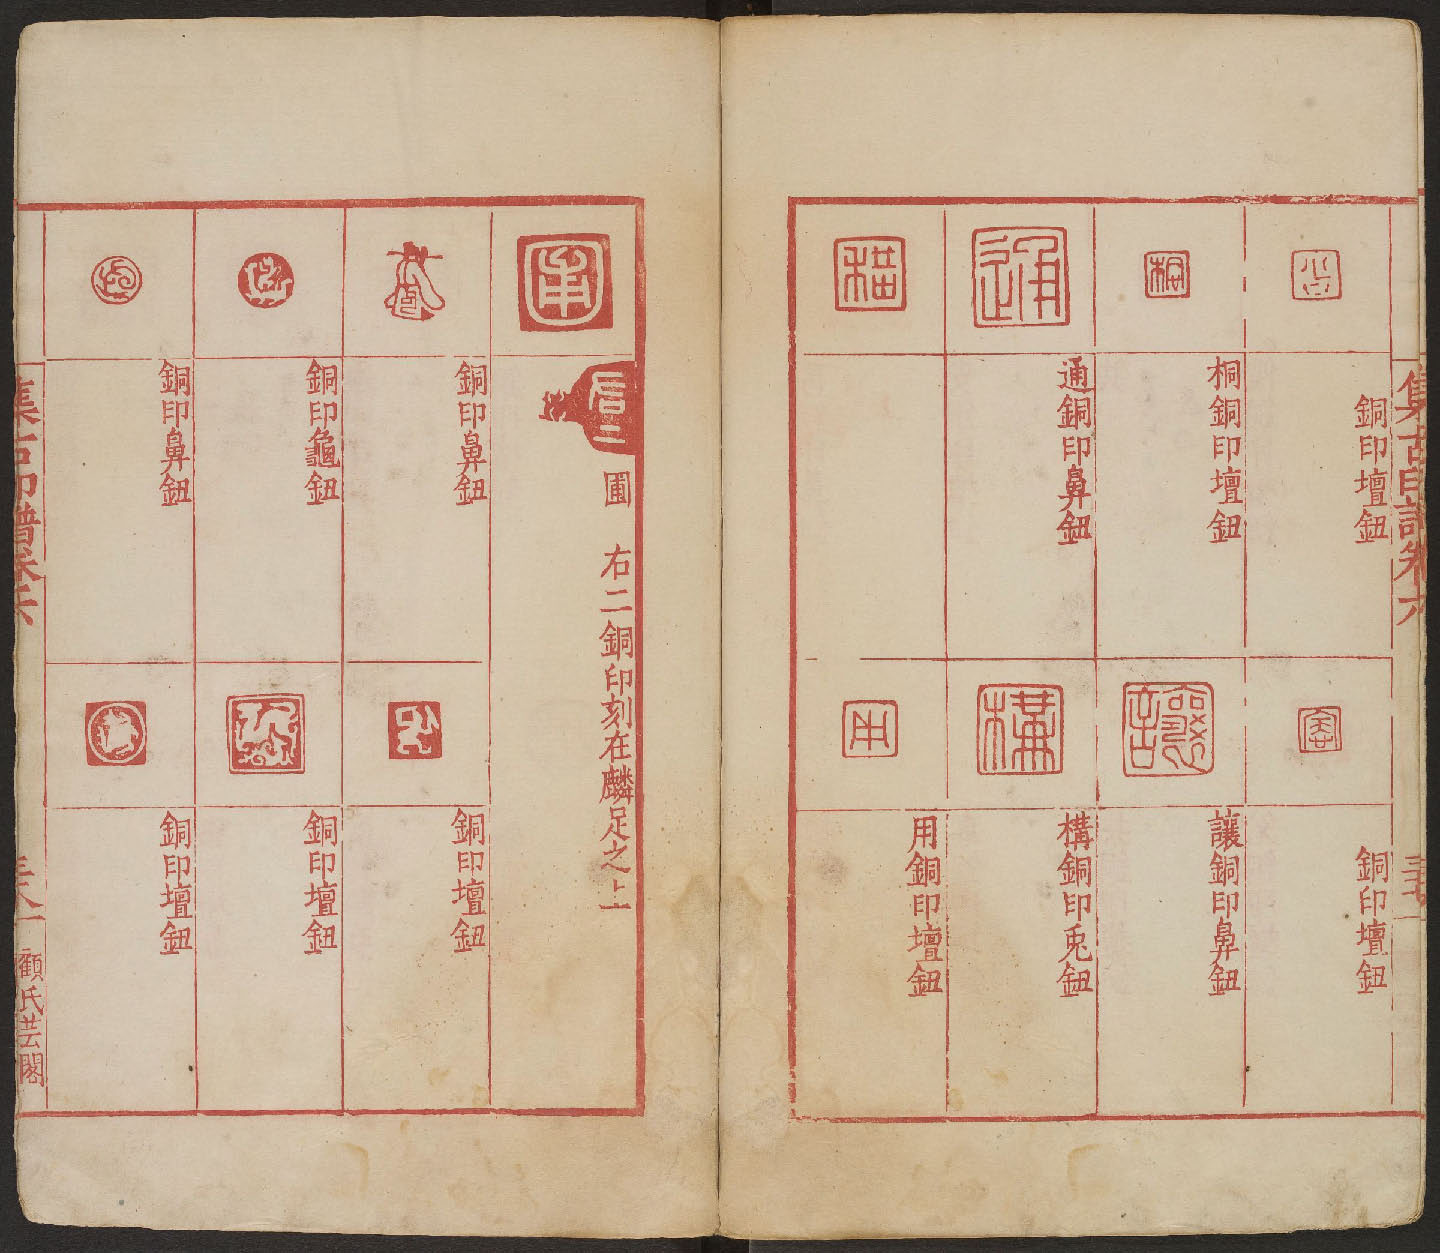 集古印譜卷六
銅印壇鈕
桐銅印壇鈕
通銅印鼻鈕
銅印壇鈕
讓銅印鼻鈕
構銅印兎鈕
用銅印壇鈕
圃　右二銅印刻在麟足之上
銅印鼻鈕
銅印龜鈕
銅印鼻鈕
銅印壇鈕
銅印壇鈕
銅印壇鈕
集古印譜卷六
顧氏芸閣